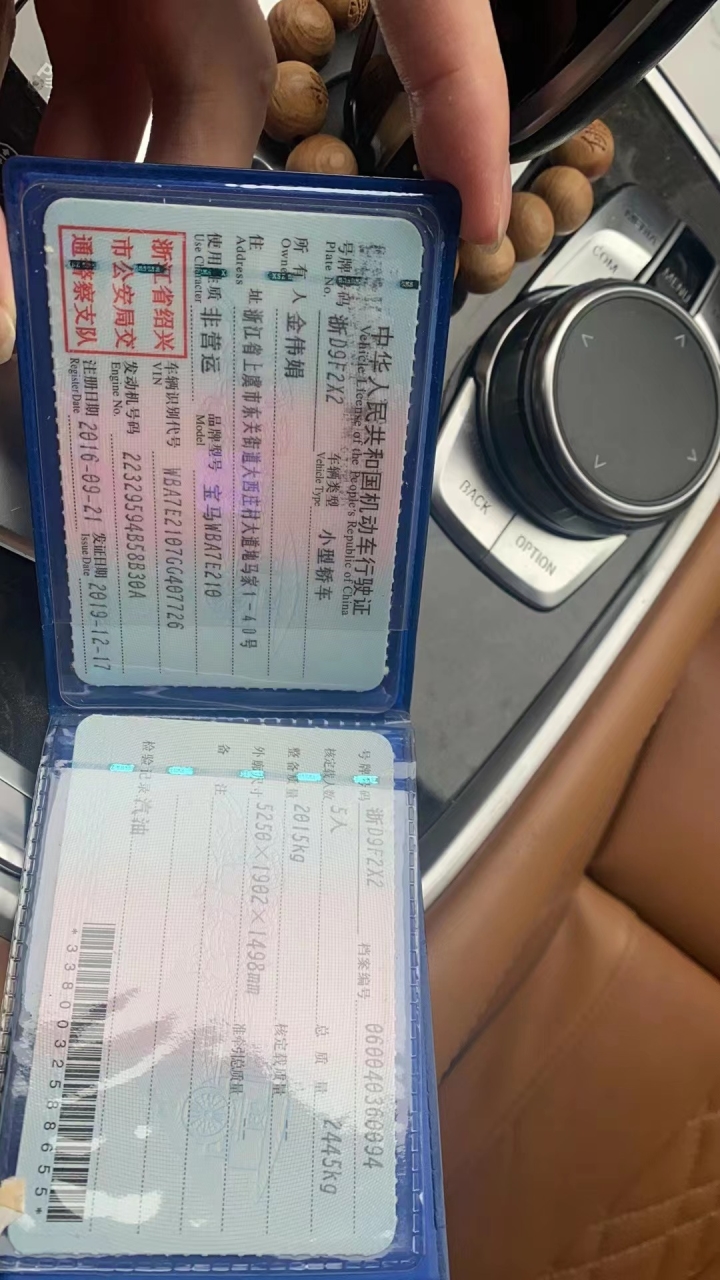 中华人民共和国机动车行驶证
Vehicle License of the People's Republic of China
号牌号码 浙D9F2X2 车辆类型 小型轿车
Plate No. Vehicle Type
所有人 金伟娟
Owner
住址 浙江省上虞市东关街道大西庄村大道地马家1-40号
Address
使用性质 非营运 品牌型号 宝马WBA7E210
Use Character Model
浙江省绍兴
市公安局交
通警察支队
车辆识别代号 WBA7E2107GG407726
VIN
发动机号码 22329594B58B30A
Engine No.
注册日期 2016-09-21 发证日期 2019-12-17
Register Date Issue Date
号牌号码 浙D9F2X2 档案编号 060040360094
核定载人数 5人 总质量 2445kg
整备质量 2015kg 核定载质量
外廓尺寸 5250×1902×1498mm 准牵引总质量
备注
检验记录 汽油
*3380032588655*
COM
MENU
BACK
OPTION